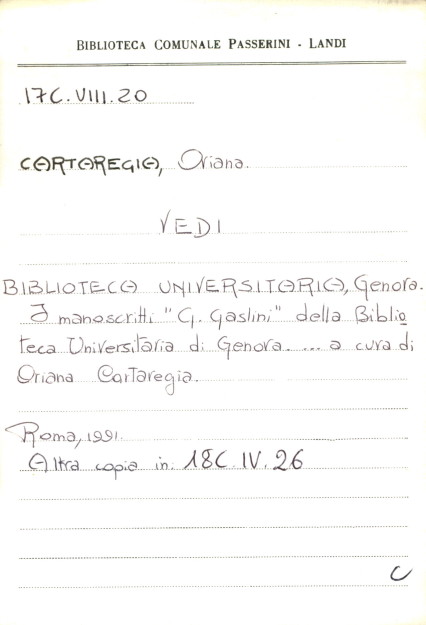 BIBLIOTECA COMUNALE PASSERINI - LANDI
17C.VIII.20
CARTAREGIA, Oriana.
VEDI
BIBLIOTECA UNIVERSITARIA, Genova.
I manoscritti "G. Gaslini" della Biblio
teca Universitaria di Genova. ... a cura di
Oriana Cartaregia.
Roma, 1991.
Altra copia in: 18C.IV.26
C